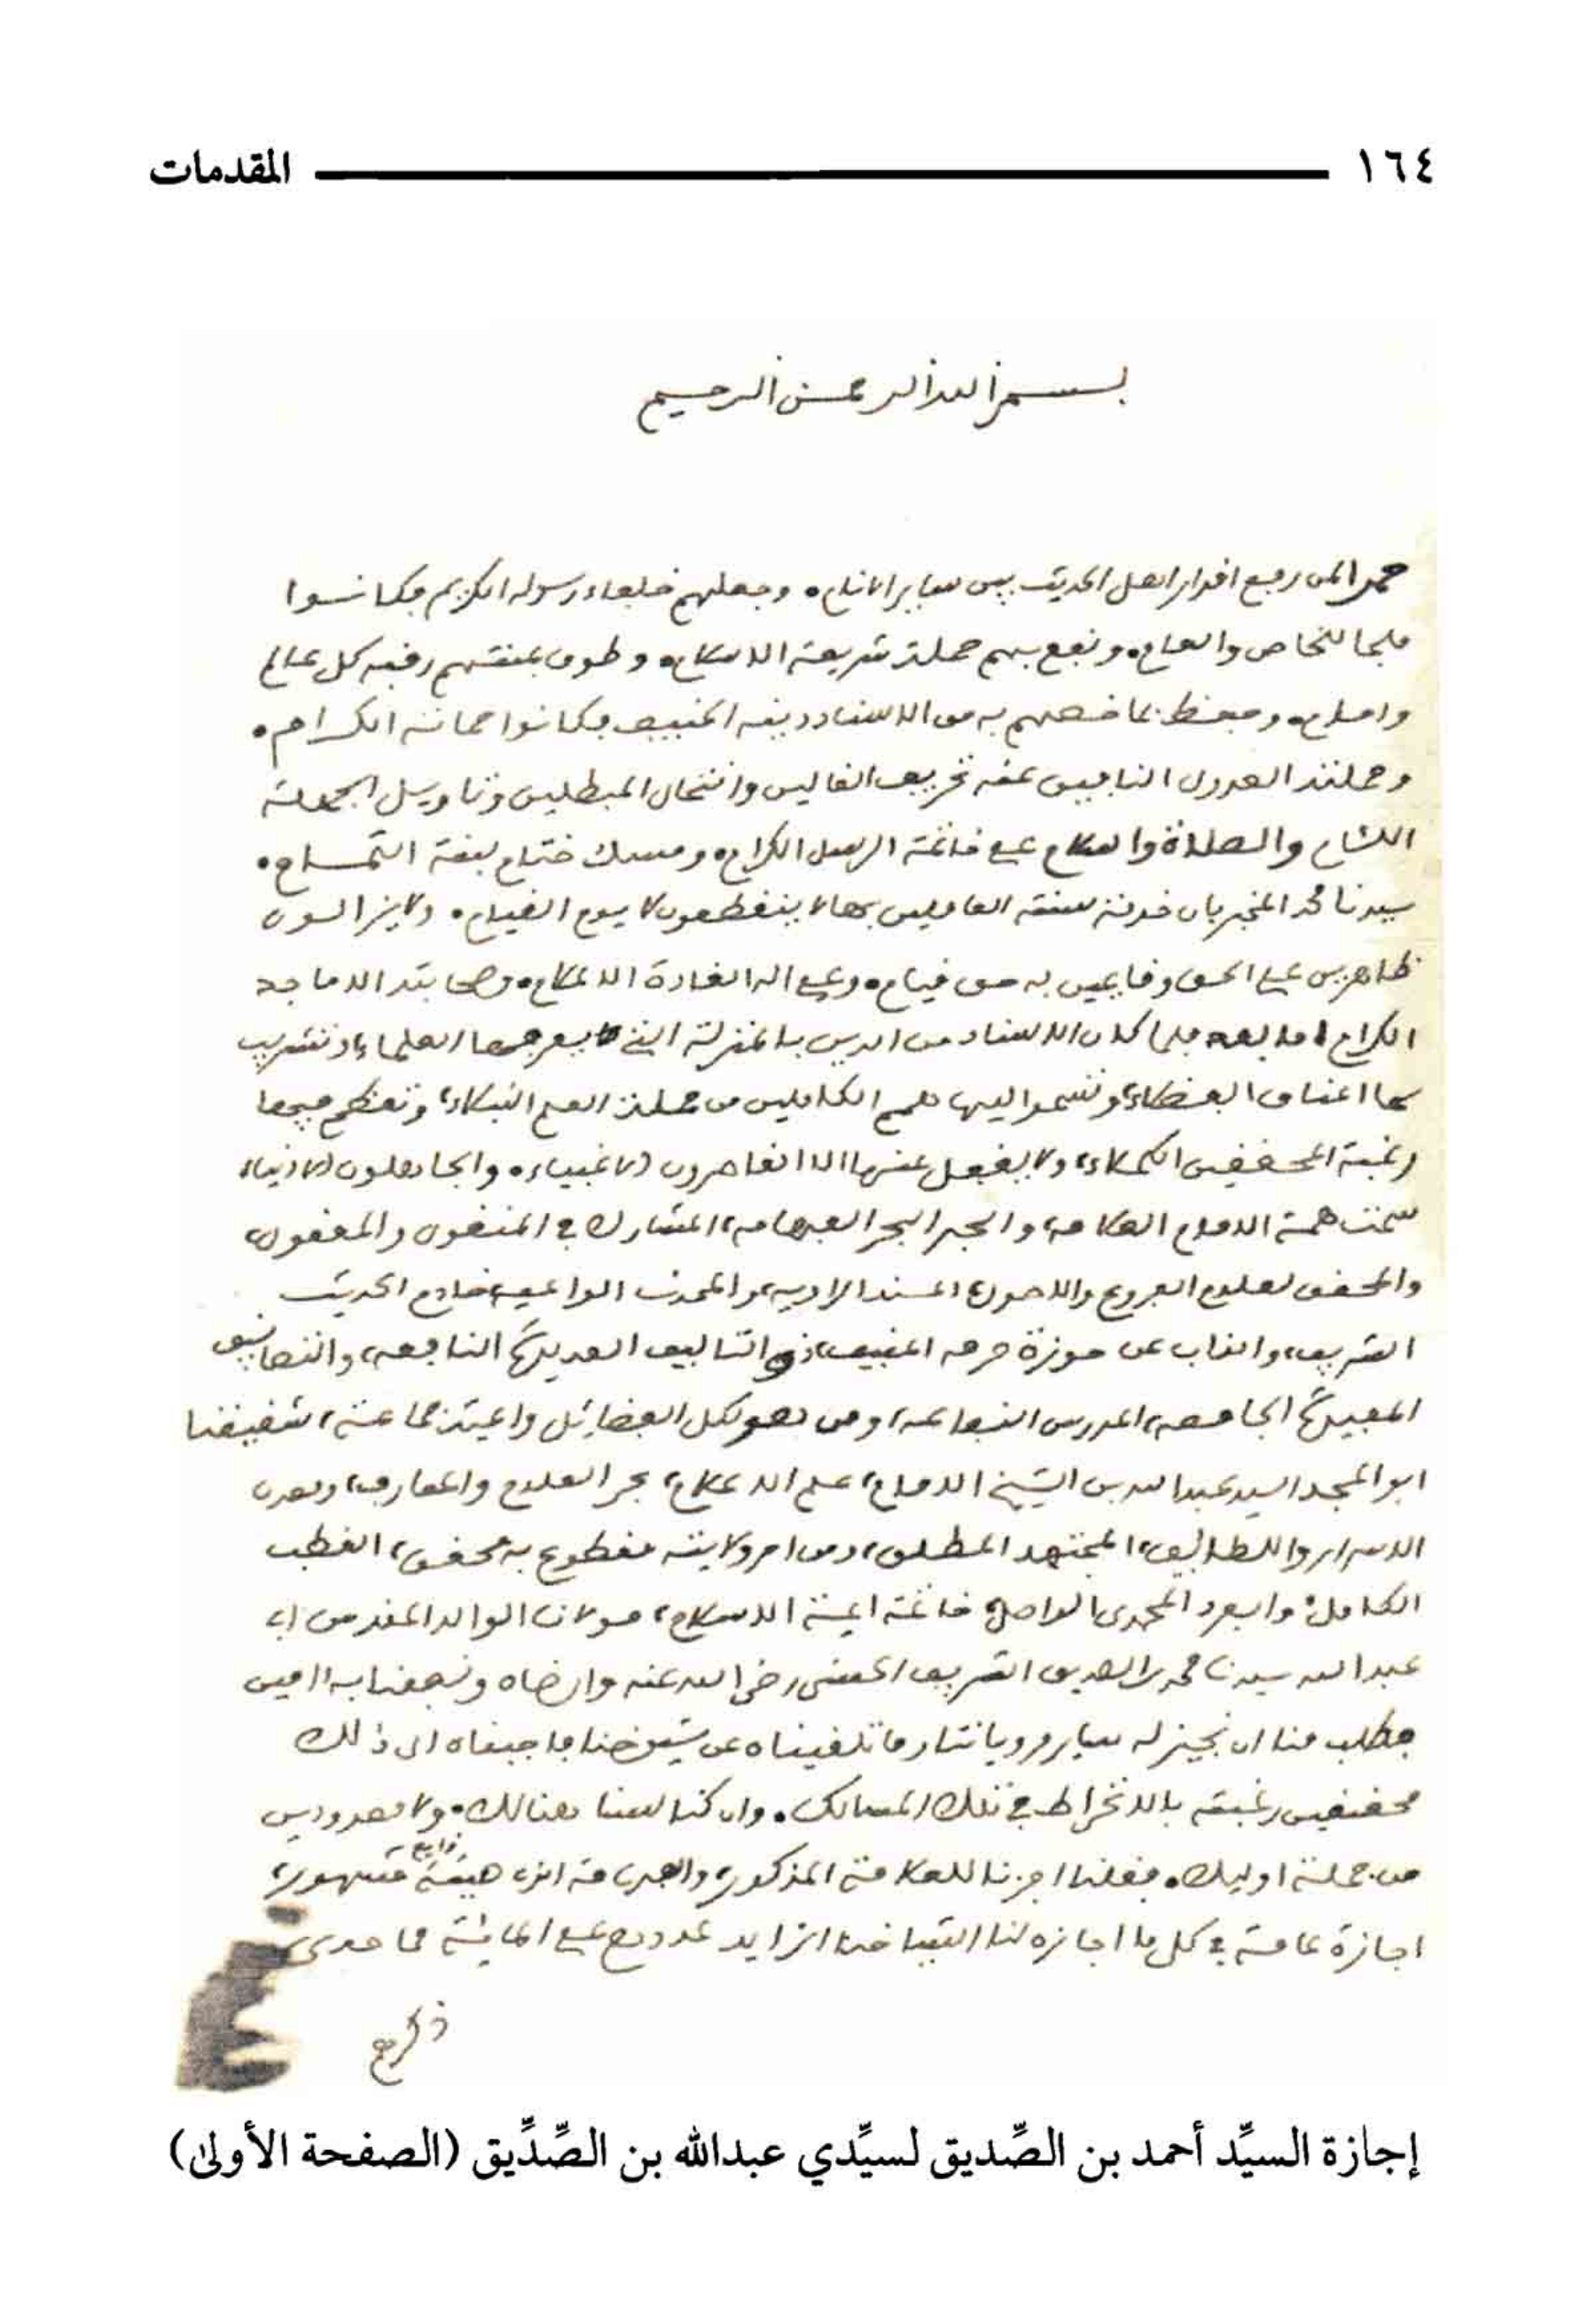 ١٦٤ المقدمات
بسم الله الرحمن الرحيم
حمدا لمن رفع اقدار اهل الحديث بين ساير الانام. وجعلهم خلفاء رسوله الكريم فكانوا
ملجا للخاص والعام. ونفع بهم حملة شريعة الاسلام. وطوق بمنتهم رقبة كل عالم
وامام. وحفظ بما خصهم به من الاسناد دينه الحنيف فكانوا حماته الكرام.
وحملته العدول النافين عنه تحريف الغالين وانتحال المبطلين وتاويل الجهلة
اللئام والصلاة والسلام على خاتمة الرسل الكرام. ومسك ختام لبنة التمام.
سيدنا محمد المخبر بان خدمة سنته العاملين بها لا ينقطعون لا يوم القيام. ولا يزالون
ظاهرين على الحق وقايمين به حق قيام. وعلى اله القادة الاعلام. وصحابته الاماجد
الكرام اما بعد فلما كان الاسناد من الدين بالمنزلة التي يعرفها العلماء، وتشريب
لها اعناق الفضلاء، وتسموا اليها همم الكاملين من حملة العلم النبلاء، وتعظم فيها
رغبة المحققين الكملاء، ولا يغفل عنها الا القاصرون الاغبياء. والجاهلون الادنياء
سمت همة الامام العلامه، والحبر البحر الفهامه، المشارك في المنقول والمعقول،
والمحقق لعلوم الفروع والاصول، المسند الراويه، والمحدث الواعيه، خادم الحديث
الشريف، والذاب عن حوزة حرمه المنيف، ذو التاليف العديدة النافعه، والتصانيف
المفيدة الجامعه، المدرس النفاعه، ومن هو لكل الفضايل واعية جماعة، شقيقنا
ابو المجد السيد عبد الله بن الشيخ الامام، علم الاعلام، بحر العلوم والمعارف، ومعدن
الاسرار واللطايف، المجتهد المطلق، ومن امر ولايته مقطوع به محقق، القطب
الكامل، والفرد المحمدي الواصل، خاتمة ايمة الاسلام، مولانا الوالد المقدس ابي
عبد الله سيدنا محمد بن الصديق الشريف الحسني رضي الله عنه وارضاه ونفعنا به امين
فطلب منا ان نجيز له ساير مروياتنا وما تلقيناه عن شيوخنا فاجبناه الى ذلك
محققين رغبته بالانخراط في تلك المسالك. وان كنا لسنا هنالك. ولا معدودين
من جملة اوليك. فقلنا اجزنا للعلامة المذكور، والفهامة الذي مشهور،
اجازة عامة في كل ما اجازه لنا اشياخنا الزايد عددهم على الماية مما حوى
ذكرهم
إجازة السيِّد أحمد بن الصِّديق لسيِّدي عبدالله بن الصِّدِّيق (الصفحة الأولىٰ)